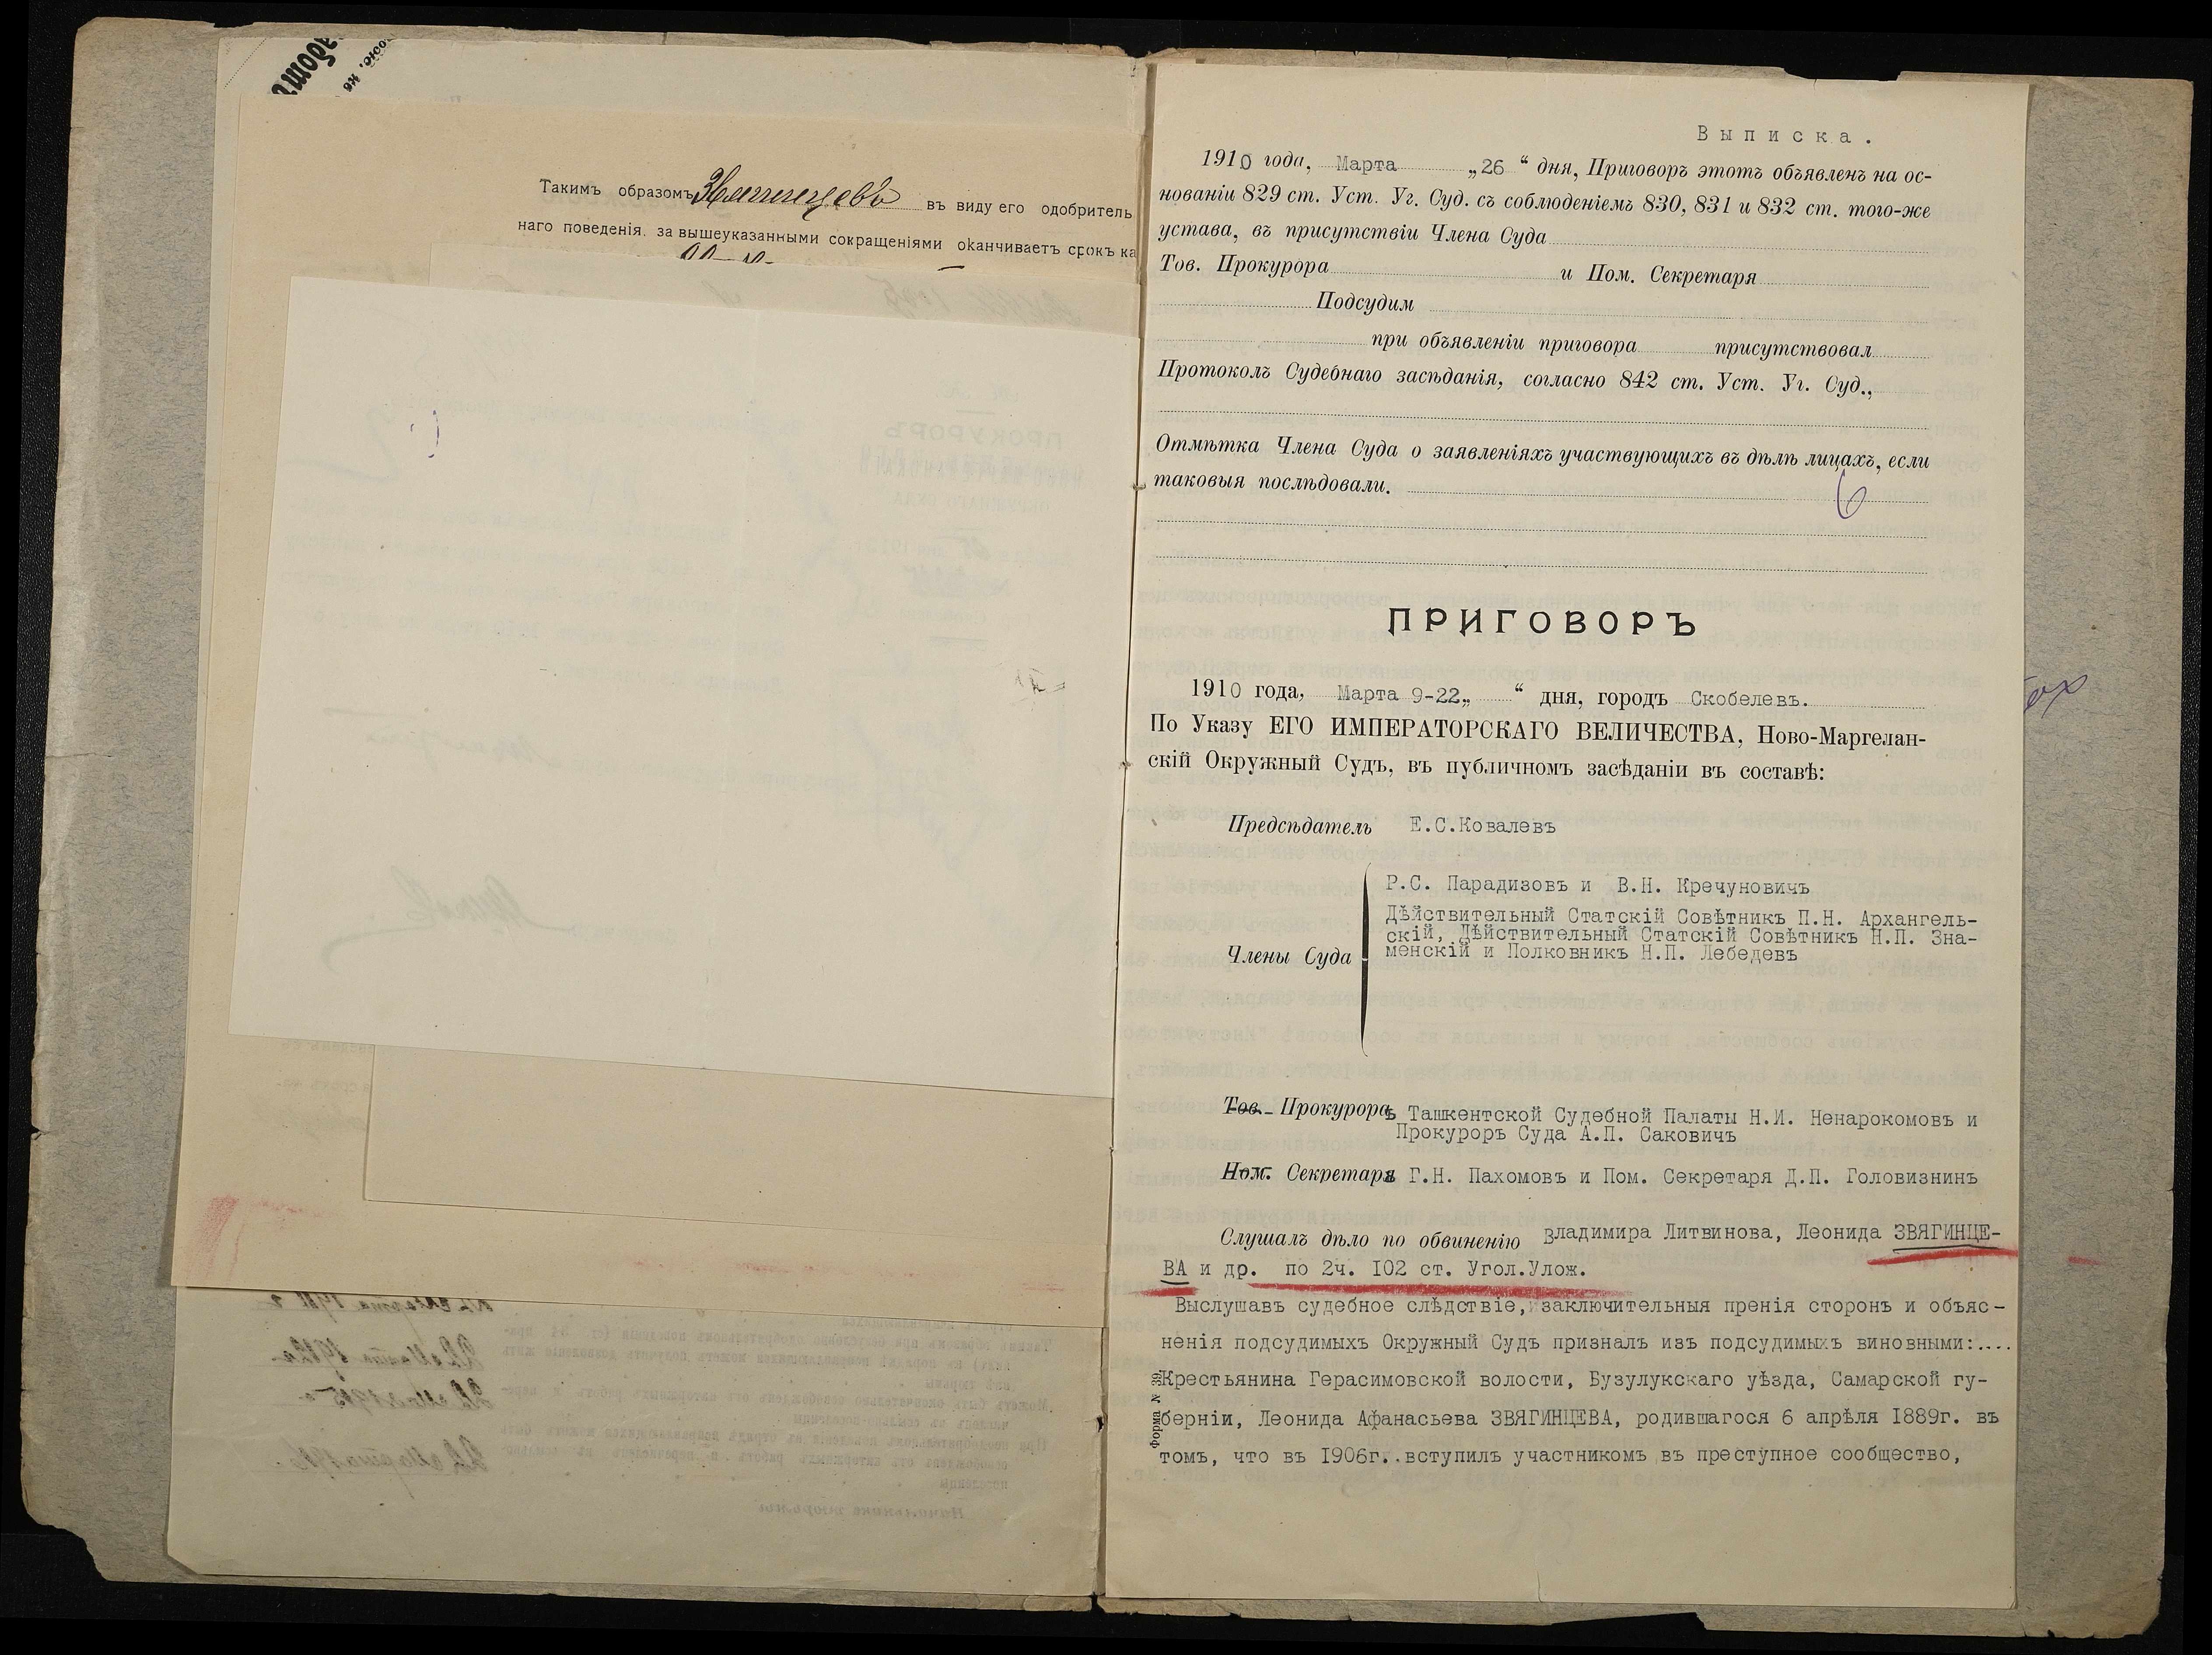 Такимъ образомъ Звягинцевъ въ виду его одобритель
наго поведенія, за вышеуказанными сокращеніями оканчиваетъ срокъ ка
Выписка.
1910 года, Марта „26“ дня, Приговоръ этотъ объявленъ на ос-
нованіи 829 ст. Уст. Уг. Суд. съ соблюденіемъ 830, 831 и 832 ст. того-же
устава, въ присутствіи Члена Суда
Тов. Прокурора и Пом. Секретаря
Подсудим
при объявленіи приговора присутствовал
Протоколъ Судебнаго засѣданія, согласно 842 ст. Уст. Уг. Суд.,
Отмѣтка Члена Суда о заявленіяхъ участвующихъ въ дѣлѣ лицахъ, если
таковыя послѣдовали.
6
ПРИГОВОРЪ
1910 года, Марта 9-22„ “ дня, городъ Скобелевъ.
По Указу ЕГО ИМПЕРАТОРСКАГО ВЕЛИЧЕСТВА, Ново-Маргелан-
скій Окружный Судъ, въ публичномъ засѣданіи въ составѣ:
Предсѣдатель Е.С.Ковалевъ
Р.С. Парадизовъ и В.Н. Кречуновичъ
Дѣйствительный Статскій Совѣтникъ П.Н. Архангель-
скій, Дѣйствительный Статскій Совѣтникъ Н.П. Зна-
Члены Суда менскій и Полковникъ Н.П. Лебедевъ
Тов. Прокуроръ Ташкентской Судебной Палаты Н.И. Ненарокомовъ и
Прокуроръ Суда А.П. Саковичъ
Пом. Секретарь Г.Н. Пахомовъ и Пом. Секретаря Д.П. Головизнинъ
Слушалъ дѣло по обвиненію Владимира Литвинова, Леонида ЗВЯГИНЦЕ-
ВА и др. по 2ч. I02 ст. Угол.Улож.
Выслушавъ судебное слѣдствіе, заключительныя пренія сторонъ и объяс-
ненія подсудимыхъ Окружный Судъ призналъ изъ подсудимыхъ виновными:....
Крестьянина Герасимовской волости, Бузулукскаго уѣзда, Самарской гу-
берніи, Леонида Афанасьева ЗВЯГИНЦЕВА, родившагося 6 апрѣля I889г. въ
томъ, что въ I906г. вступилъ участникомъ въ преступное сообщество,
Форма №